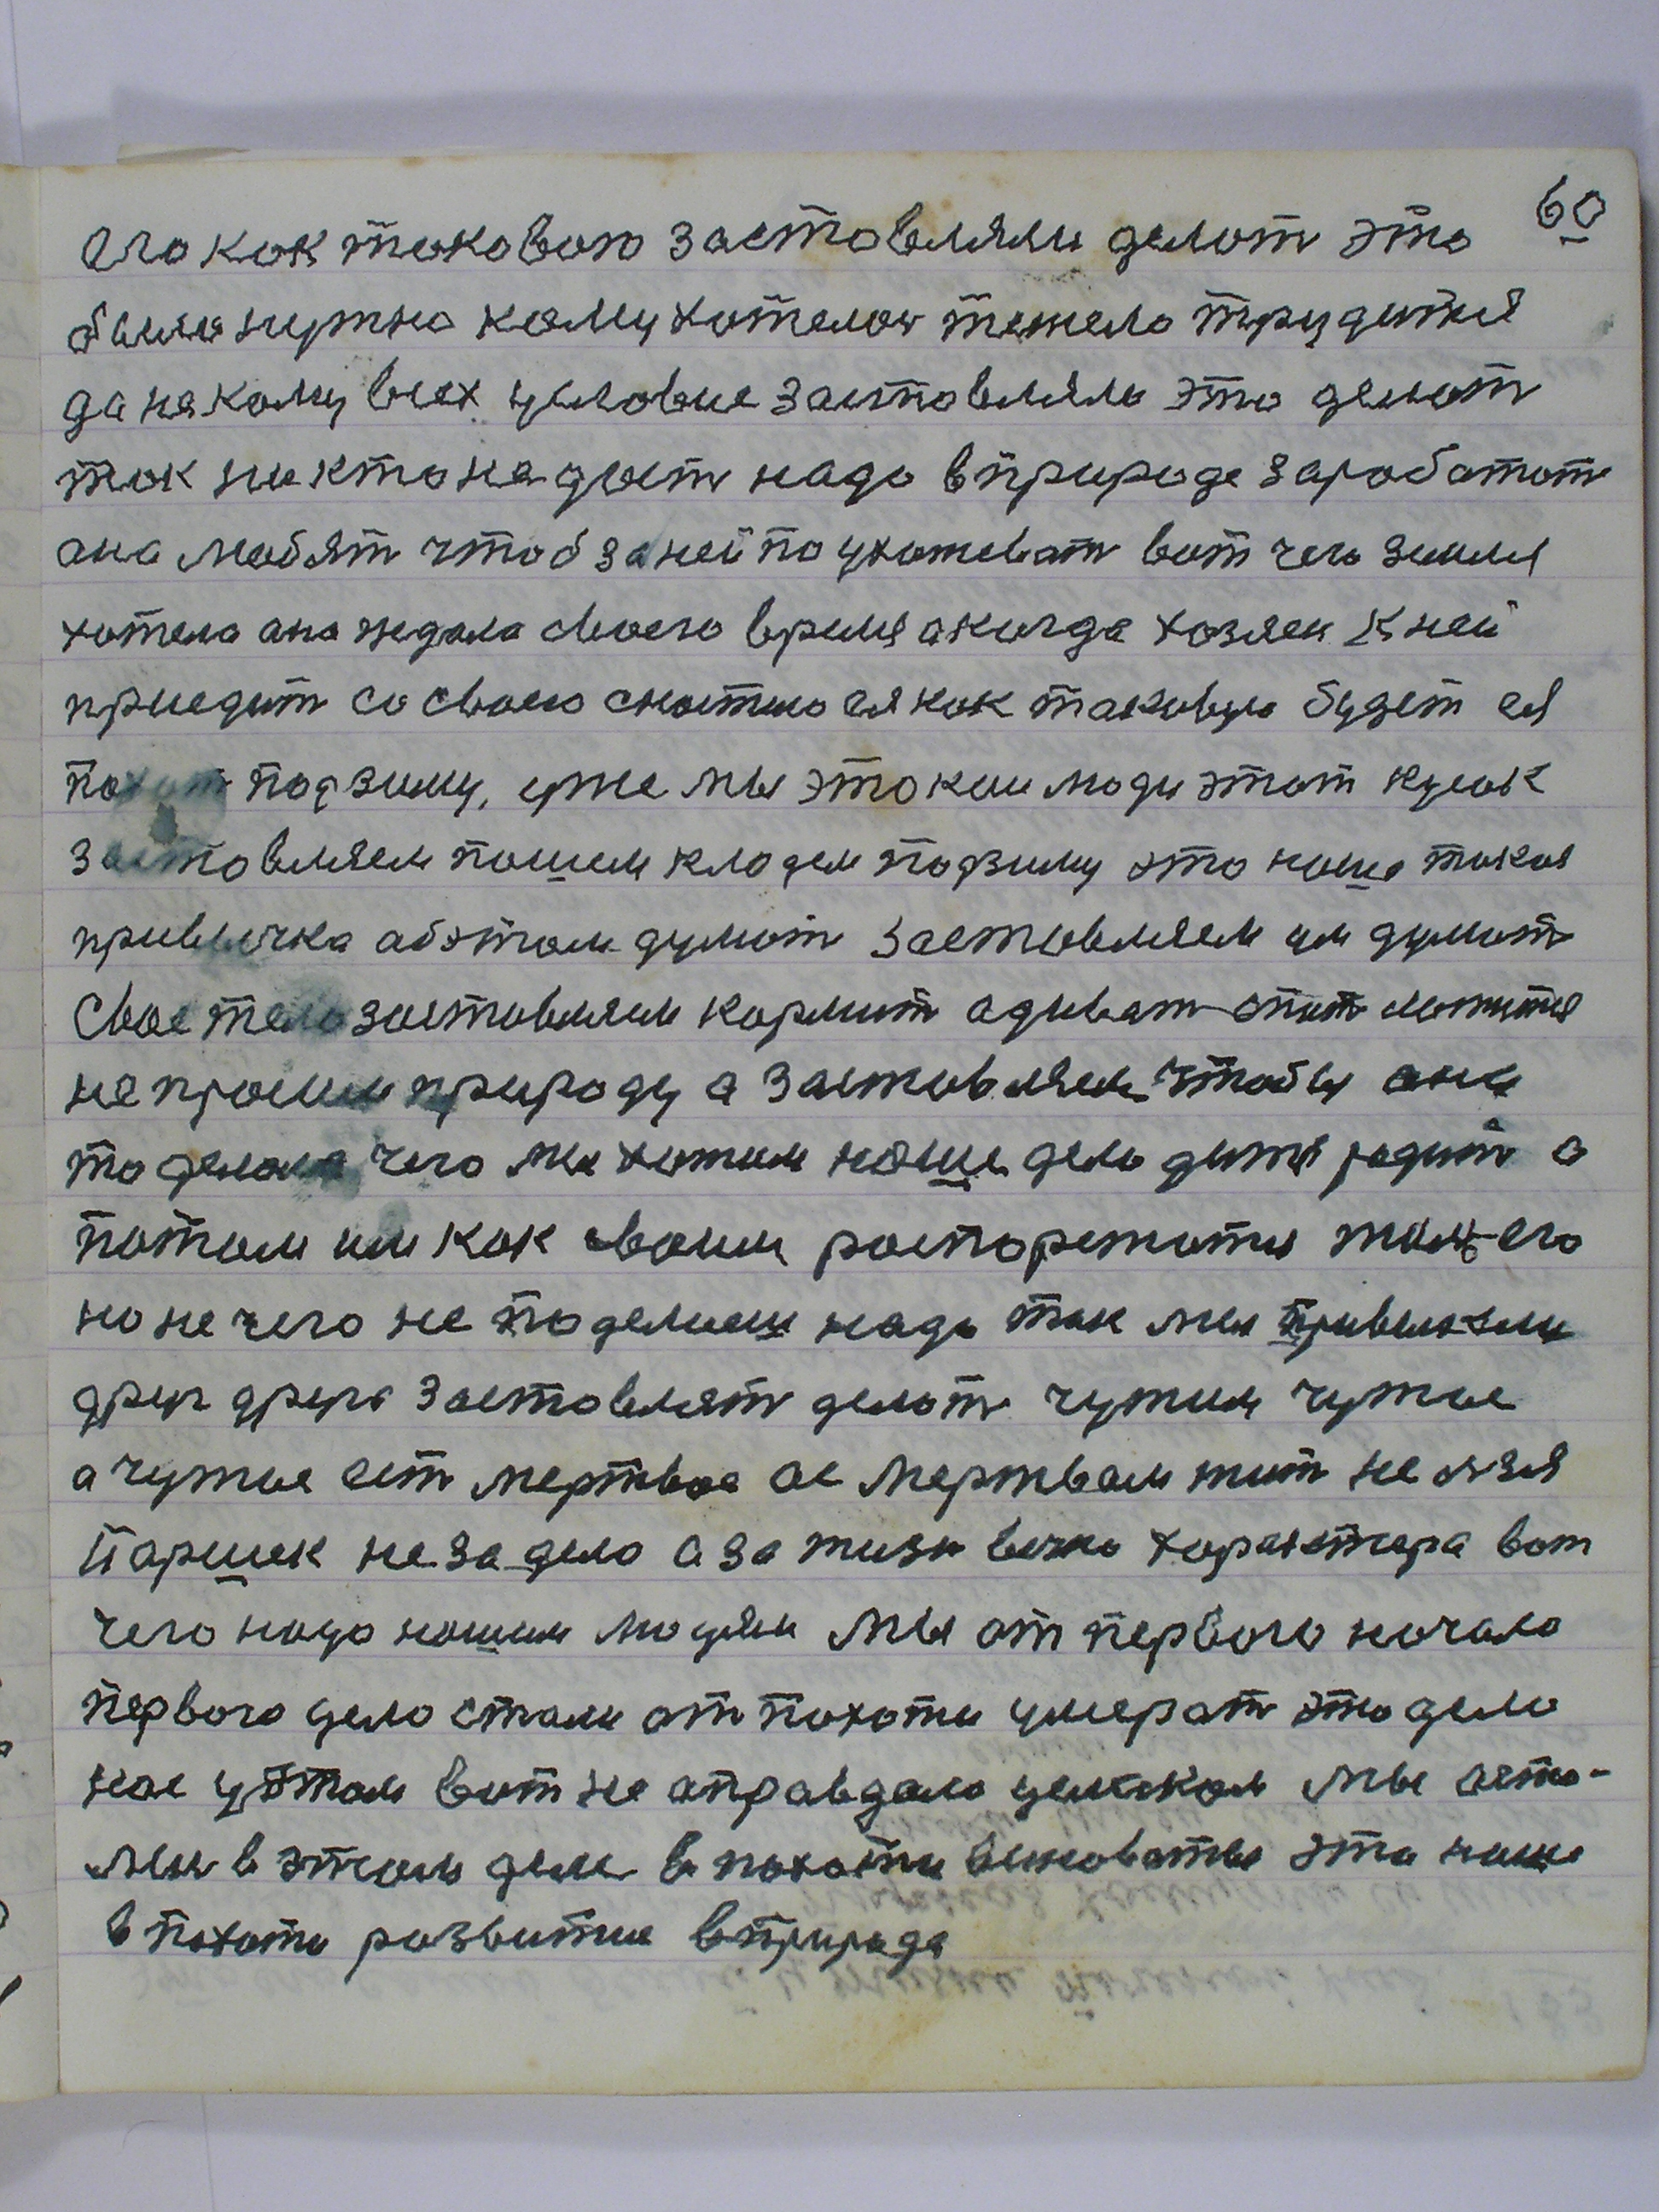 60
его как таковою заставляли делат это
было нужно кому хотелос тежело трудитця
да не кому всех условие заставляли это делат
так никто не даст надо в природе заработат
ана любят чтоб за ней поухаживат вот чего земля
хотела ана ждала своего время а когда хозяен к ней
приедит со своею снастию ея как таковую будет ея
подзиму, уже мы этокии люди этот кусок
заставляем пашем кладем подзиму это наша такая
привычка абэтом думат заставляем им думат
свае тело заставляем кормит адеват спат ложитця
не просим природу а заставляем чтобы ани
то делали чего мы хотим наше дело дитя радит а
потом им как своим распоряжатця его
но не чего не поделиш надо так мы привыкли
друг друга заставлят делат чужим чужие
а чужие ест мертвое ас мертвам жит не лзя
Паршек не за дело а за жизн вечно характера вот
чего надо нашим людям мы от первого начала
первого дело стали от похоти умерат это дело
нас у этом вот не аправдало целиком мы сами-
мы в этом деле в похоти виноватые это наше
в похоти развитие в природе